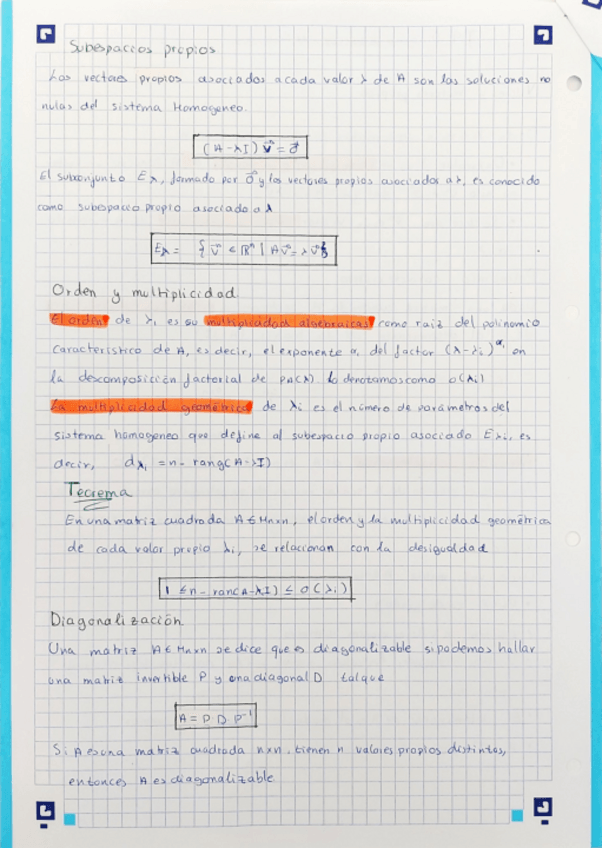 Subespacios propios
Los vectores propios asociados a cada valor λ de A son las soluciones no
nulas del sistema Homogeneo.
(A-λI) v⃗ = 0⃗
El subconjunto Eλ, formado por 0⃗ y los vectores propios asociados a λ, es conocido
como subespacio propio asociado a λ
Eλ = { v⃗ ∈ ℝⁿ | A v⃗ = λ v⃗ }
Orden y multiplicidad
El orden de λi es su multiplicidad algebraicas como raiz del polinomio
característico de A, es decir, el exponente αi del factor (λ-λi)^αi en
la descomposición factorial de pA(λ) lo denotamos como o(λi)
La multiplicidad geométrica de λi es el número de parámetros del
sistema homogeneo que define al subespacio propio asociado Eλi, es
decir, dλi = n - rang(A-λI)
Teorema
En una matriz cuadrada A ∈ Mnxn, el orden y la multiplicidad geométrica
de cada valor propio λi, se relacionan con la desigualdad
1 ≤ n - ran(A-λI) ≤ o(λi)
Diagonalización
Una matriz A ∈ Mnxn se dice que es diagonalizable si podemos hallar
una matriz invertible P y una diagonal D tal que
A = P D P⁻¹
Si A es una matriz cuadrada nxn. tienen n valores propios distintos,
entonces A es diagonalizable